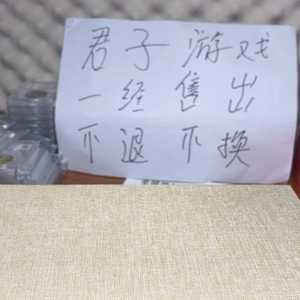 君子游戏
一经售出
不退不换